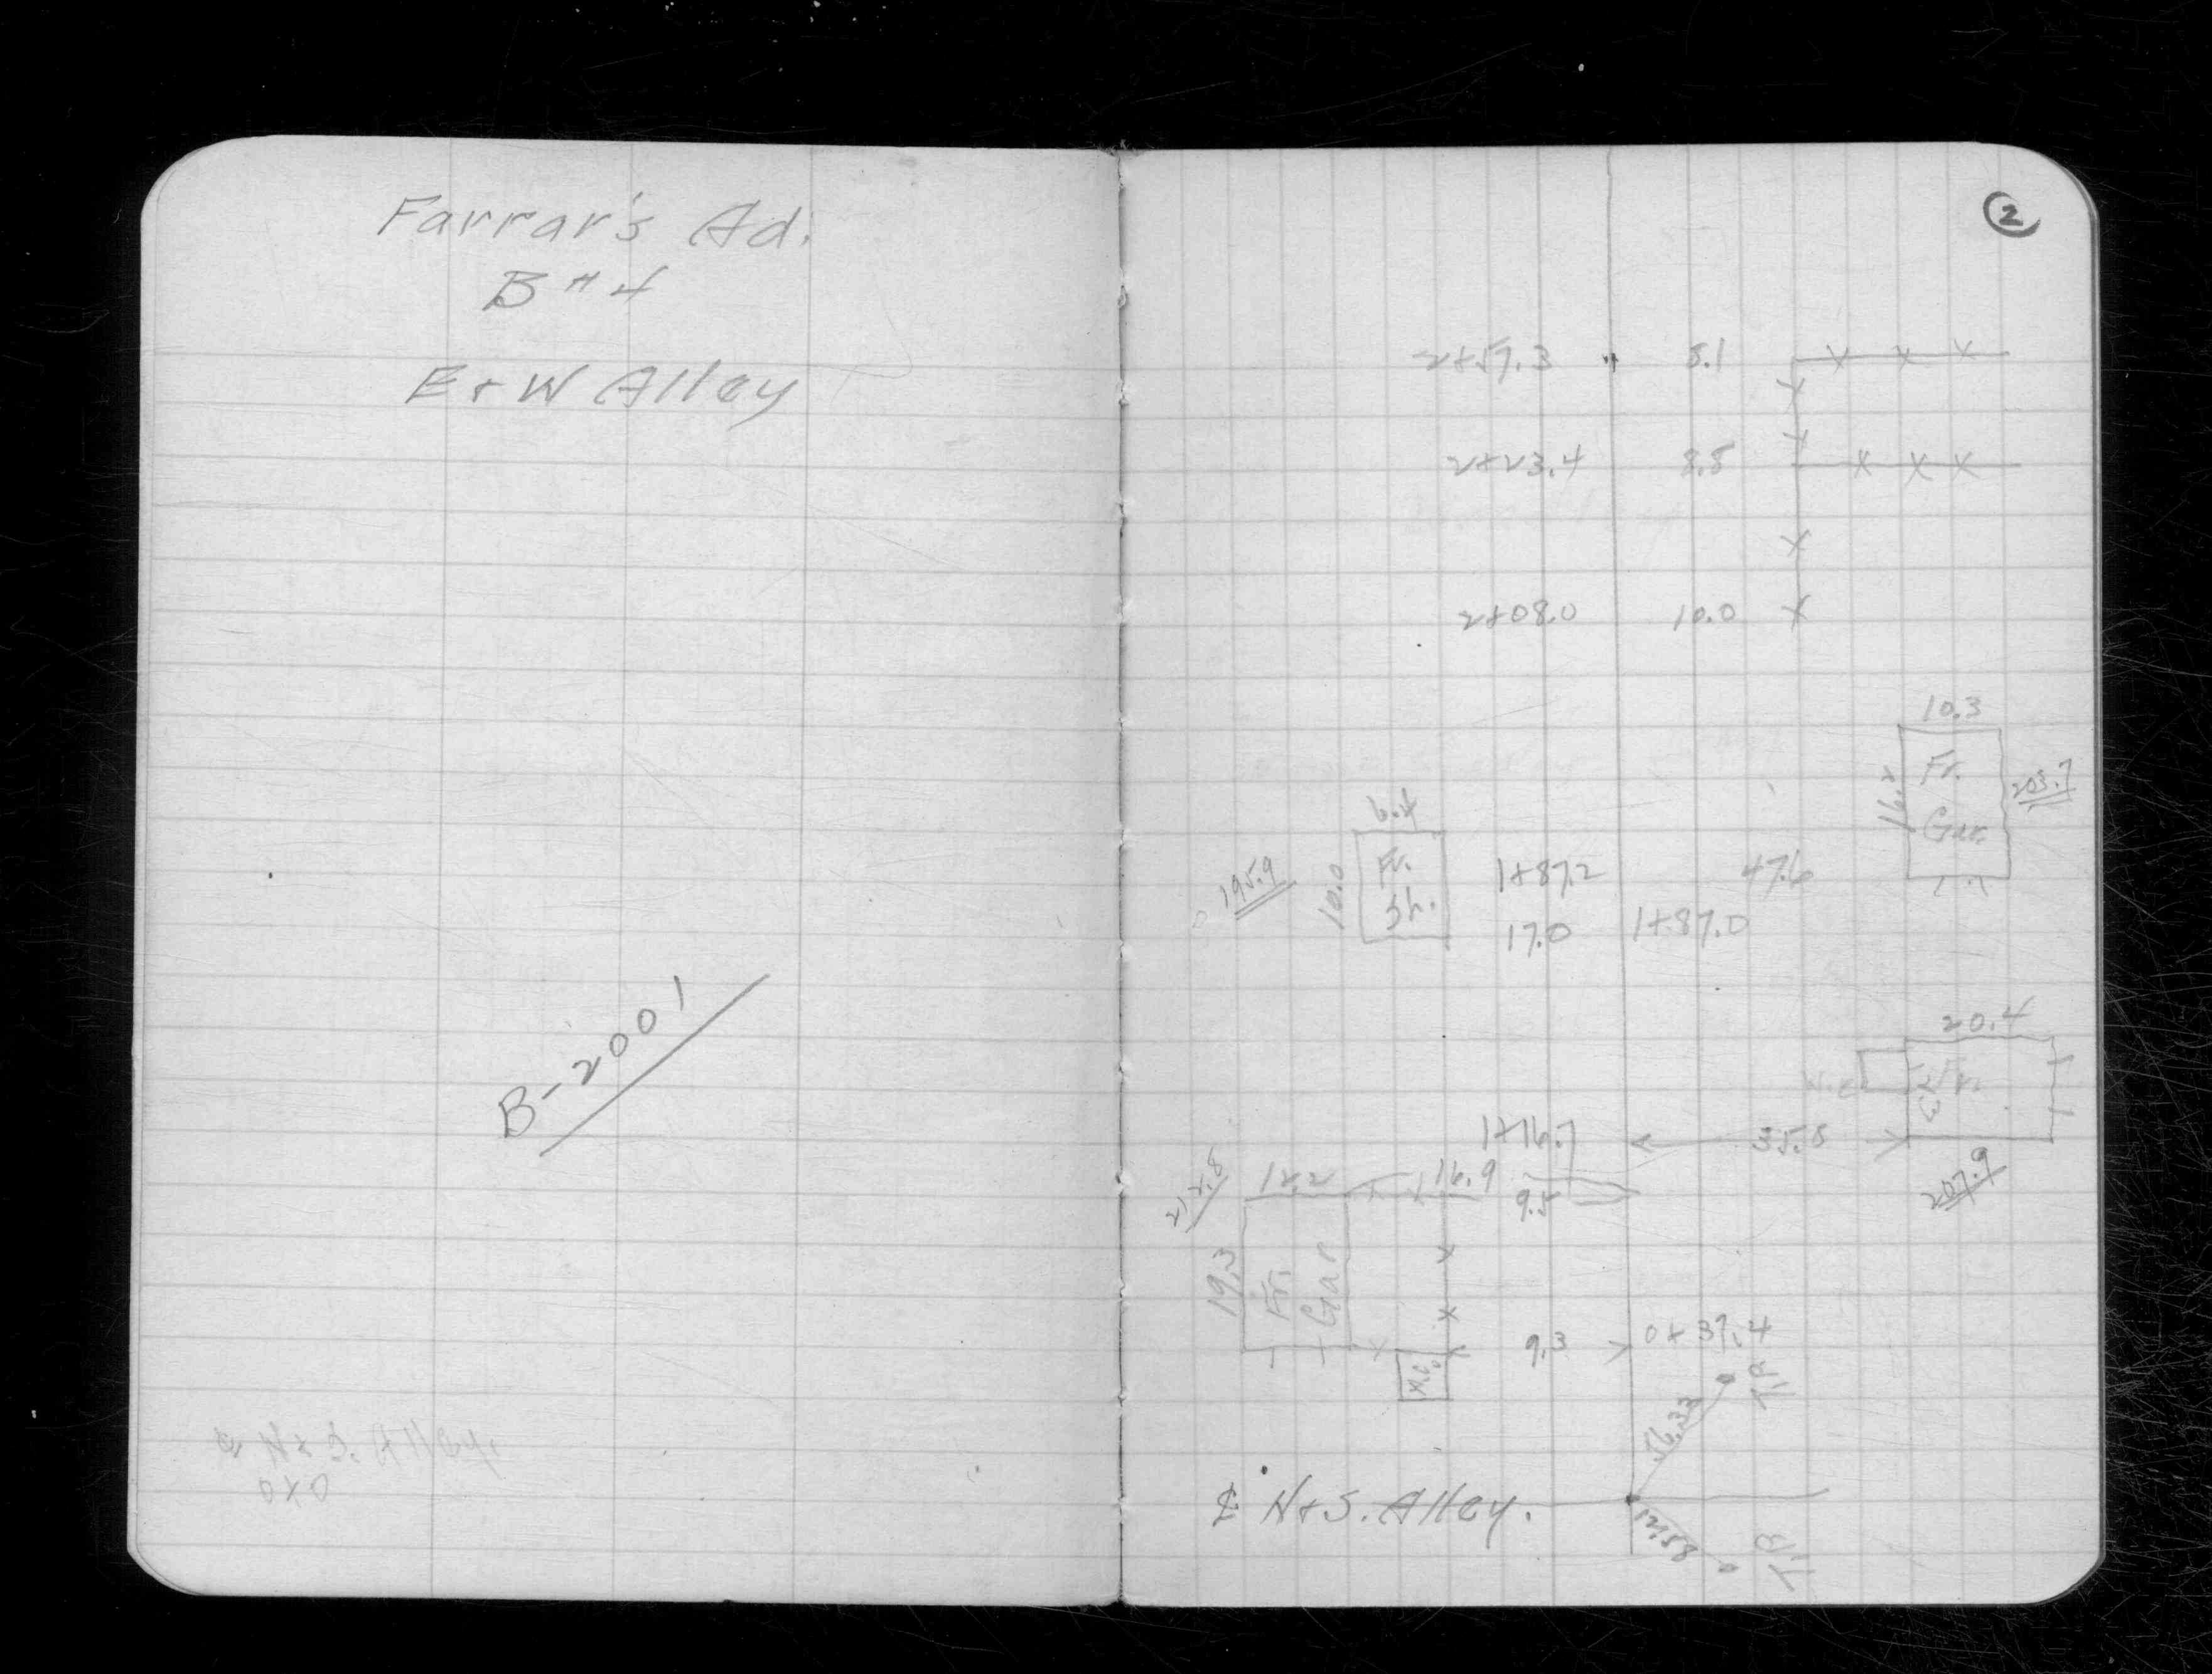 Farrar's Ad.
B#4
E+W Alley
B-2001
℄ N+S. Alley.
0+0
2
2+57.3 8.1
2+23.4 8.5
2+08.0 10.0
10.3
Fr.
Gar.
16.2
203.7
6.4
Fr.
Sh.
10.0
195.9
1+87.2 47.6
17.0 1+87.0
20.4
1+16.7 35.8
207.9
12.2 16.9
9.5
19.3
Fr.
Gar
9.3 0+37.4
T.P.
56.33
℄ N+S. Alley.
T.P.